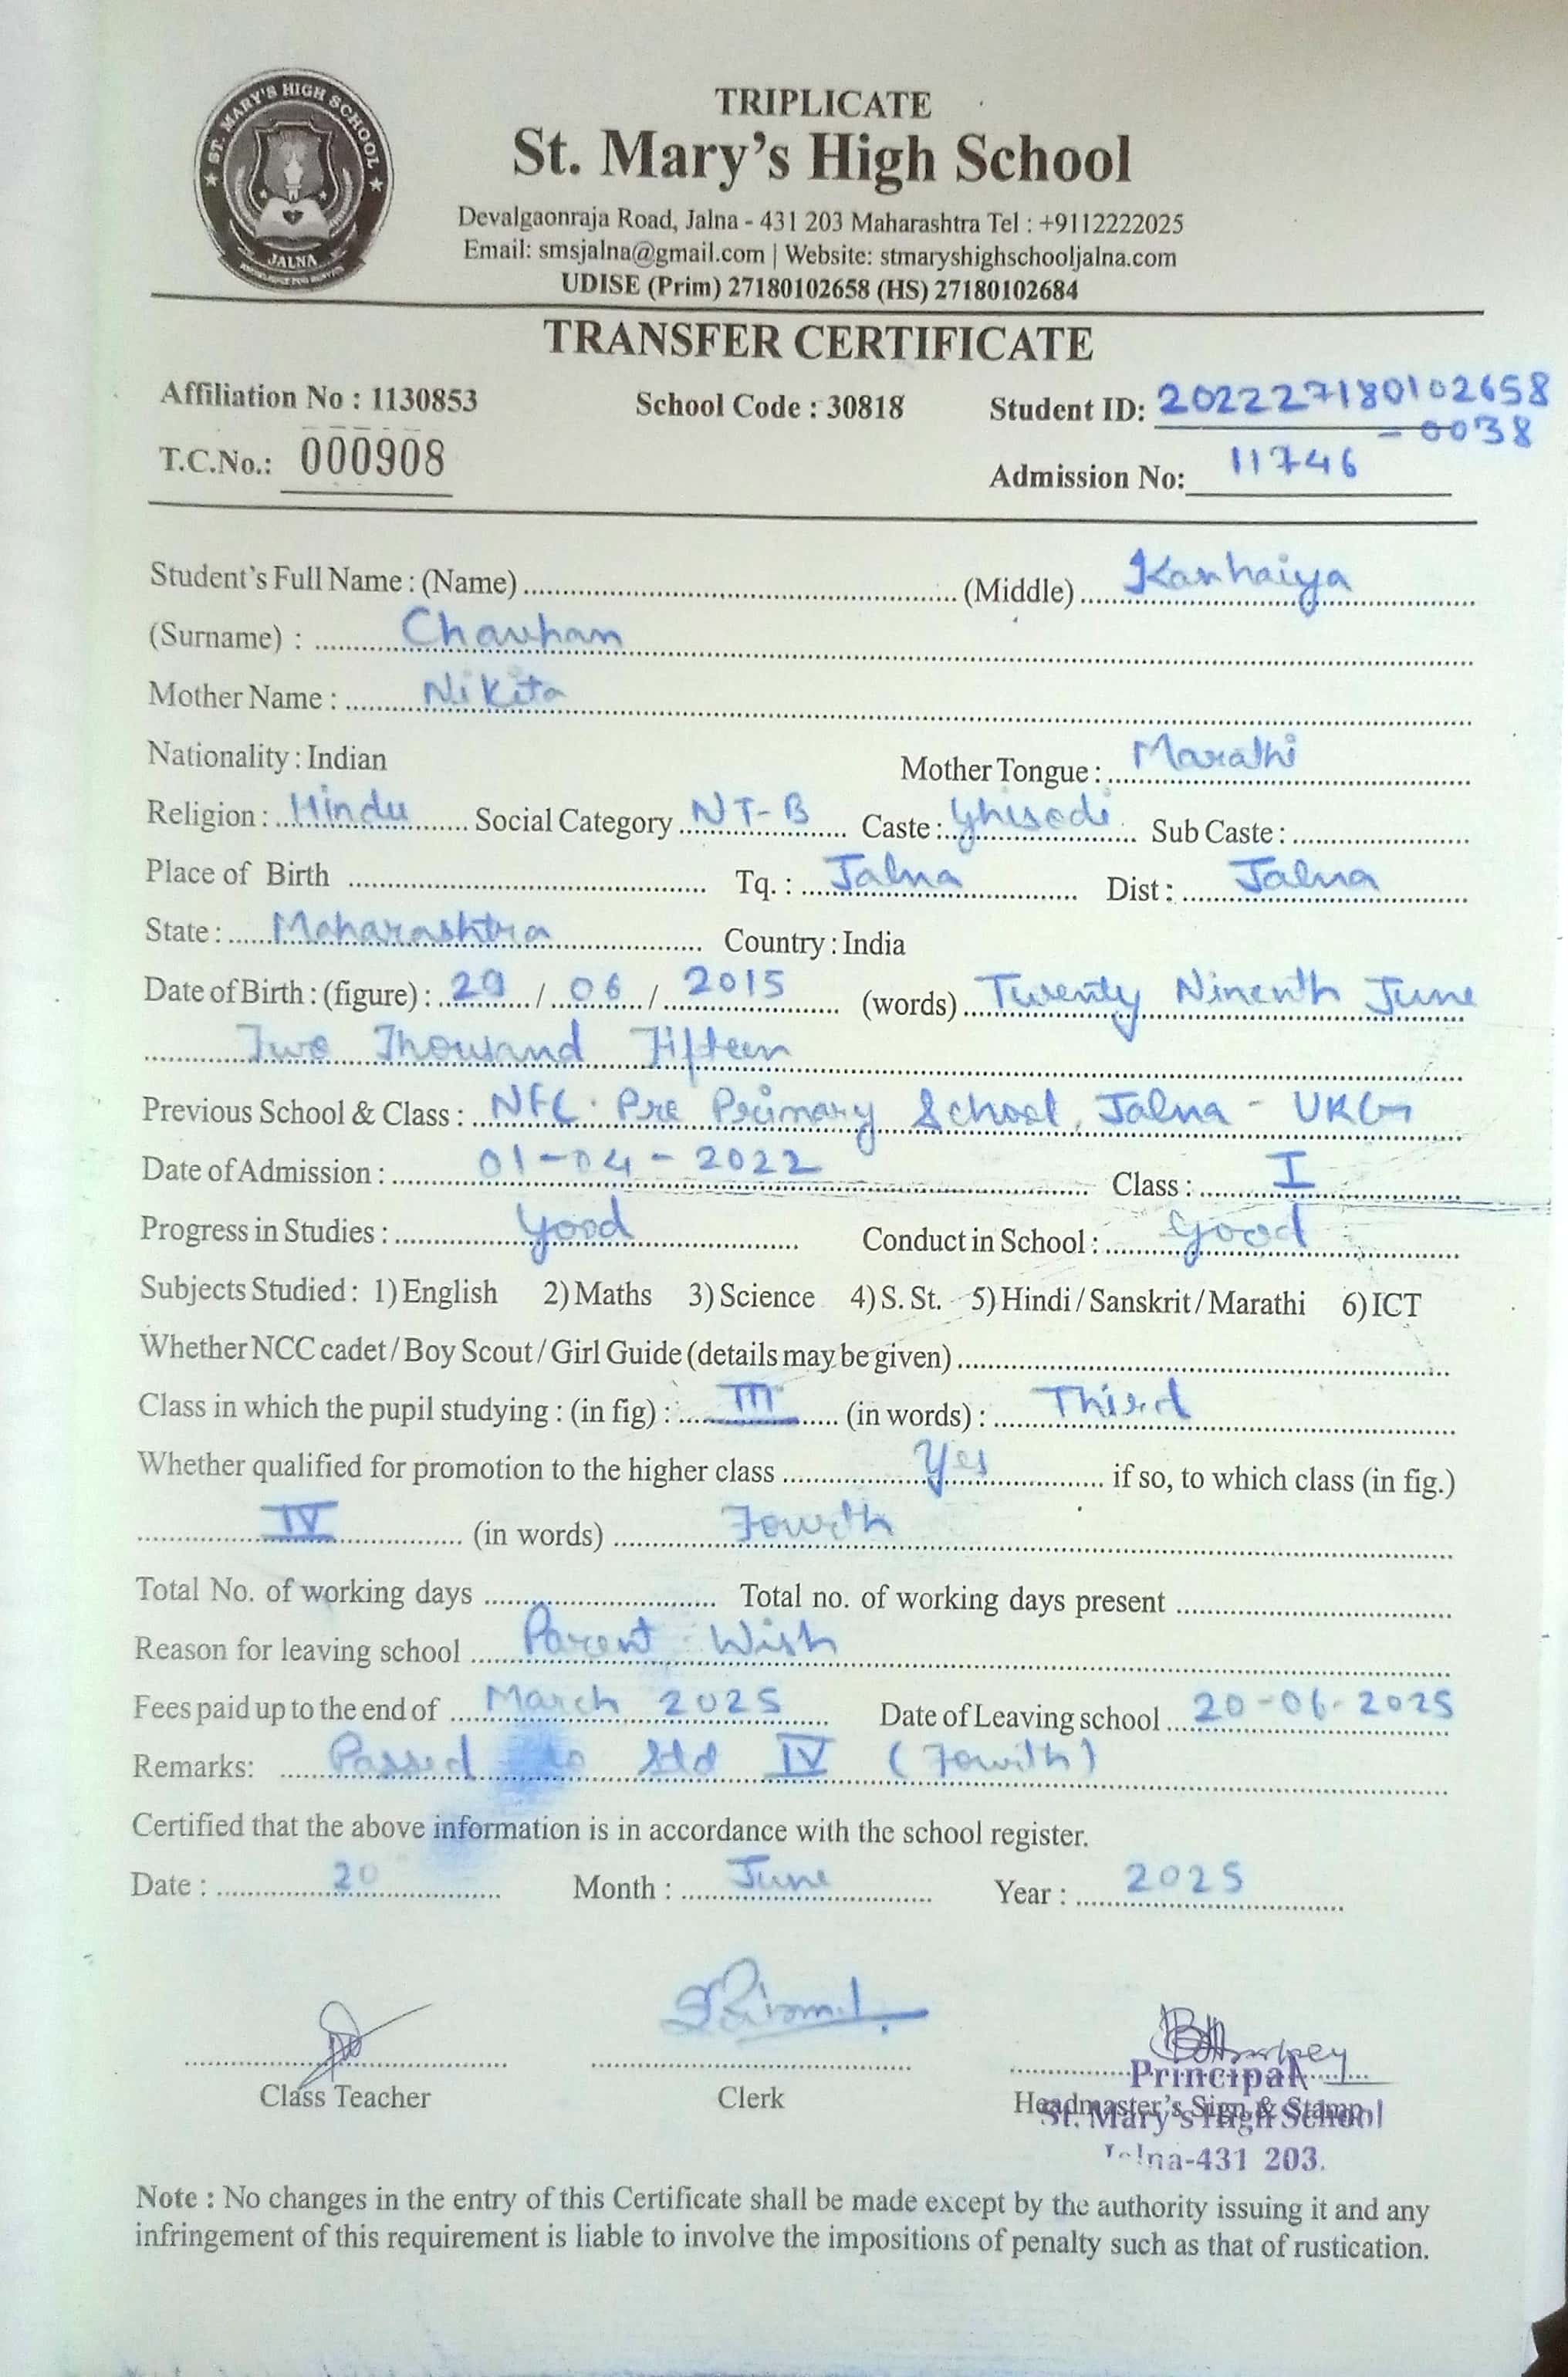 ST. MARY'S HIGH SCHOOL
JALNA
TRIPLICATE
St. Mary's High School
Devalgaonraja Road, Jalna - 431 203 Maharashtra Tel : +9112222025
Email: smsjalna@gmail.com | Website: stmaryshighschooljalna.com
UDISE (Prim) 27180102658 (HS) 27180102684
TRANSFER CERTIFICATE
Affiliation No : 1130853 School Code : 30818 Student ID: 202227180102658
- 0038
T.C.No.: 000908 Admission No: 11746
Student's Full Name : (Name) (Middle) Kanhaiya
(Surname) : Chavhan
Mother Name : Nikita
Nationality : Indian Mother Tongue : Marathi
Religion : Hindu Social Category NT-B Caste : Ghisadi Sub Caste :
Place of Birth Tq. : Jalna Dist : Jalna
State : Maharashtra Country : India
Date of Birth : (figure) : 29 / 06 / 2015 (words) Twenty Ninenth June
Two Thousand Fifteen
Previous School & Class : NFC. Pre Primary School, Jalna - UKG
Date of Admission : 01-04-2022 Class : I
Progress in Studies : Good Conduct in School : Good
Subjects Studied : 1) English 2) Maths 3) Science 4) S. St. 5) Hindi / Sanskrit / Marathi 6) ICT
Whether NCC cadet / Boy Scout / Girl Guide (details may be given)
Class in which the pupil studying : (in fig) : III (in words) : Third
Whether qualified for promotion to the higher class Yes if so, to which class (in fig.)
IV (in words) Fourth
Total No. of working days Total no. of working days present
Reason for leaving school Parent Wish
Fees paid up to the end of March 2025 Date of Leaving school 20-06-2025
Remarks: Passed to Std IV (Fourth)
Certified that the above information is in accordance with the school register.
Date : 20 Month : June Year : 2025
Class Teacher Clerk Headmaster's Sign & Stamp
Principal
St. Mary's High School
Jalna-431 203.
Note : No changes in the entry of this Certificate shall be made except by the authority issuing it and any
infringement of this requirement is liable to involve the impositions of penalty such as that of rustication.